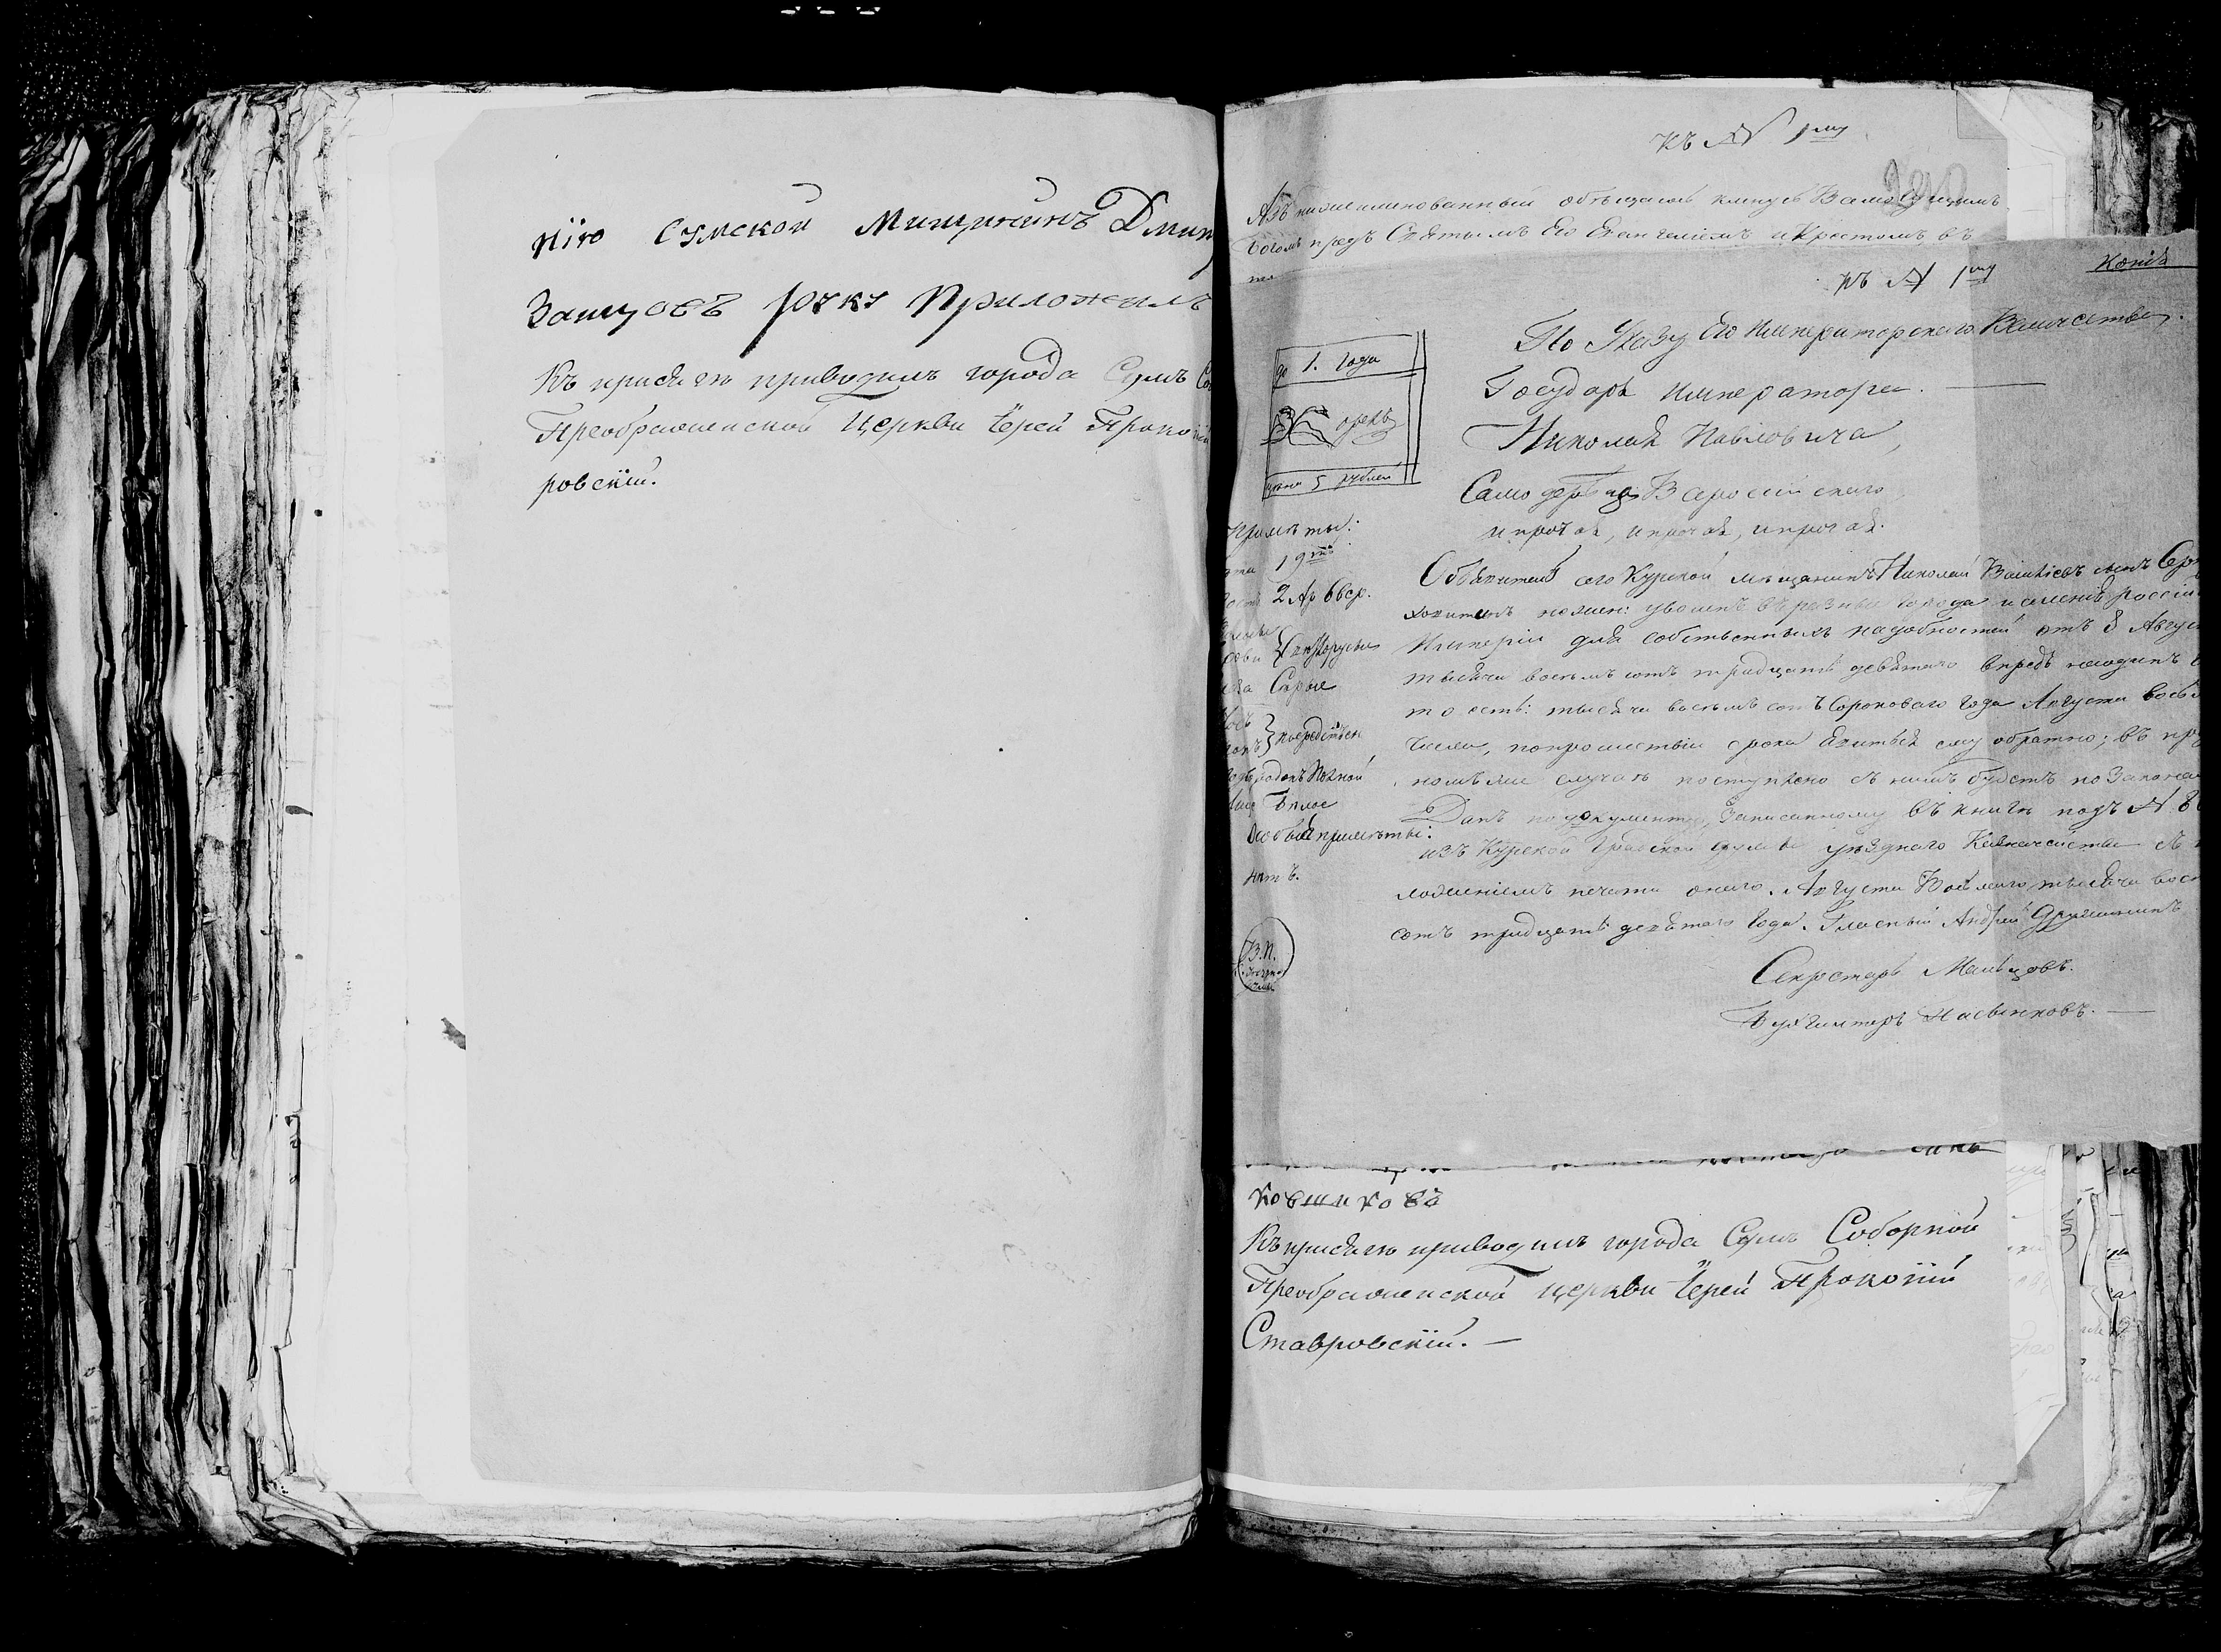 нію Сумской Мищининъ Дмит
Защуовъ руку приложилъ
Къ присягѣ приводилъ города Сумъ Со
Преображенской Церкви Іерей Прокопій
ровскій.
къ № 1му
Азъ нижеименованный обѣщаюсь и клянусь Всемогущимъ
Богомъ предъ Святымъ Его Евангеліемъ и Крестомъ въ
къ № 1му
Копія
По Указу Его Императорскаго Величества,
Государя Императора
Николая Павловича,
Самодержца Всероссійскаго
и прочая, и прочая, и прочая.
до 1. года
орелъ
цѣна 5 рублей
Примѣты:
19
2 Ар 6 вер.
Сѣрые
посредствен
Подбородокъ Полной
Лице Бѣлое
Особыя примѣты:
нѣтъ.
Объявитель сего Курской мѣщанинъ Николай Васильевъ сынъ
уволенъ въ разные города и селенія Россій
Имперіи для собственныхъ надобностей отъ 8 Август
тысяча восемь сотъ тридцать девятаго впредь на одинъ
то есть: тысяча восемь сотъ Сороковаго года Августа восьм
числа, по прошествіи срока явиться ему обратно; въ про
номъ же случаѣ поступлено съ нимъ будетъ по Закона
Данъ по документу, Записанному въ книгѣ подъ №
изъ Курской Градской думы уѣзднаго Казначейства съ
ложеніемъ печати онаго. Августа Восьмаго тысяча вос
сотъ тридцать девятаго Года. Гласный Андрей Дружининъ
Секретарь Мальцовъ.
Бухгалтеръ
В.П.
ковшиковъ
Къ присягѣ приводилъ города Сумъ Соборной
Преображенской церкви Іерей Прокопій
Ставровскій. —